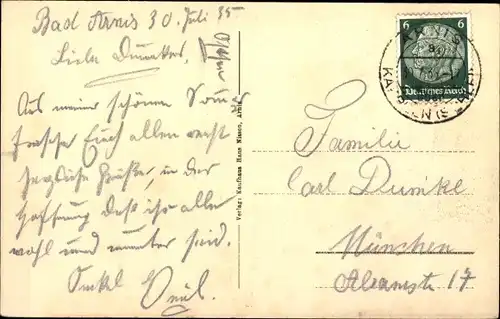 Bad Arnis 30. Juli 35
Liebe Dumkes,
Aus meiner schönen Som
frische Euch allen recht
herzliche Grüße, in der
Hoffnung daß ihr alle
wohl und munter seid.
Onkel Emil.
Verlag: Kaufhaus Hans Nissen, Arnis
6
Deutsches Reich
ARNIS
Familie
Carl Dumke
München
17